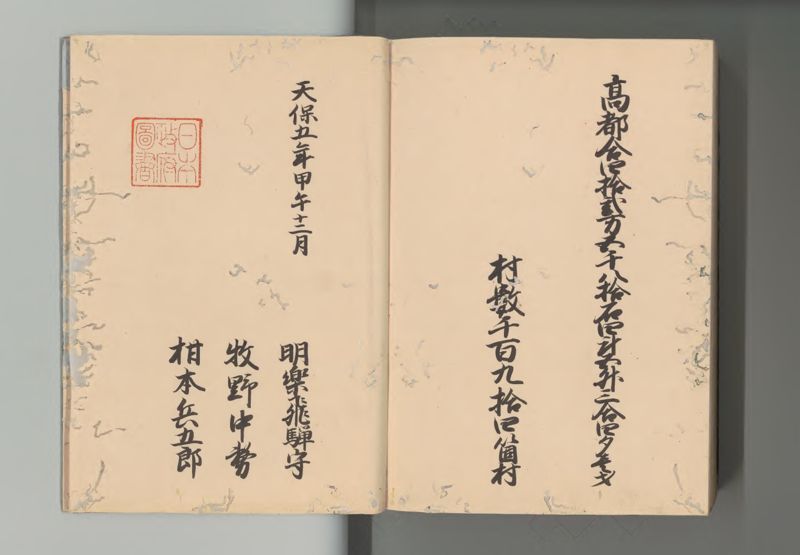 高都合四拾貳万五千八拾石四斗升三合四夕壱才
村數千百九拾四箇村
天保五年甲午十二月
明樂飛騨守
牧野中務
柑本兵五郎
日本
政府
圖書